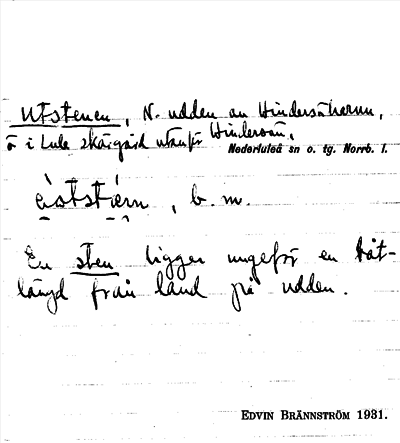 Utstenen, N. udden av Hindersöharun,
ö i Lule skärgård utanför Hindersön.
Nederluleå sn o. tg. Norrb. l.
, b. m.
En sten ligger ungefär en båt-
längd från land på udden.
EDVIN BRÄNNSTRÖM 1931.